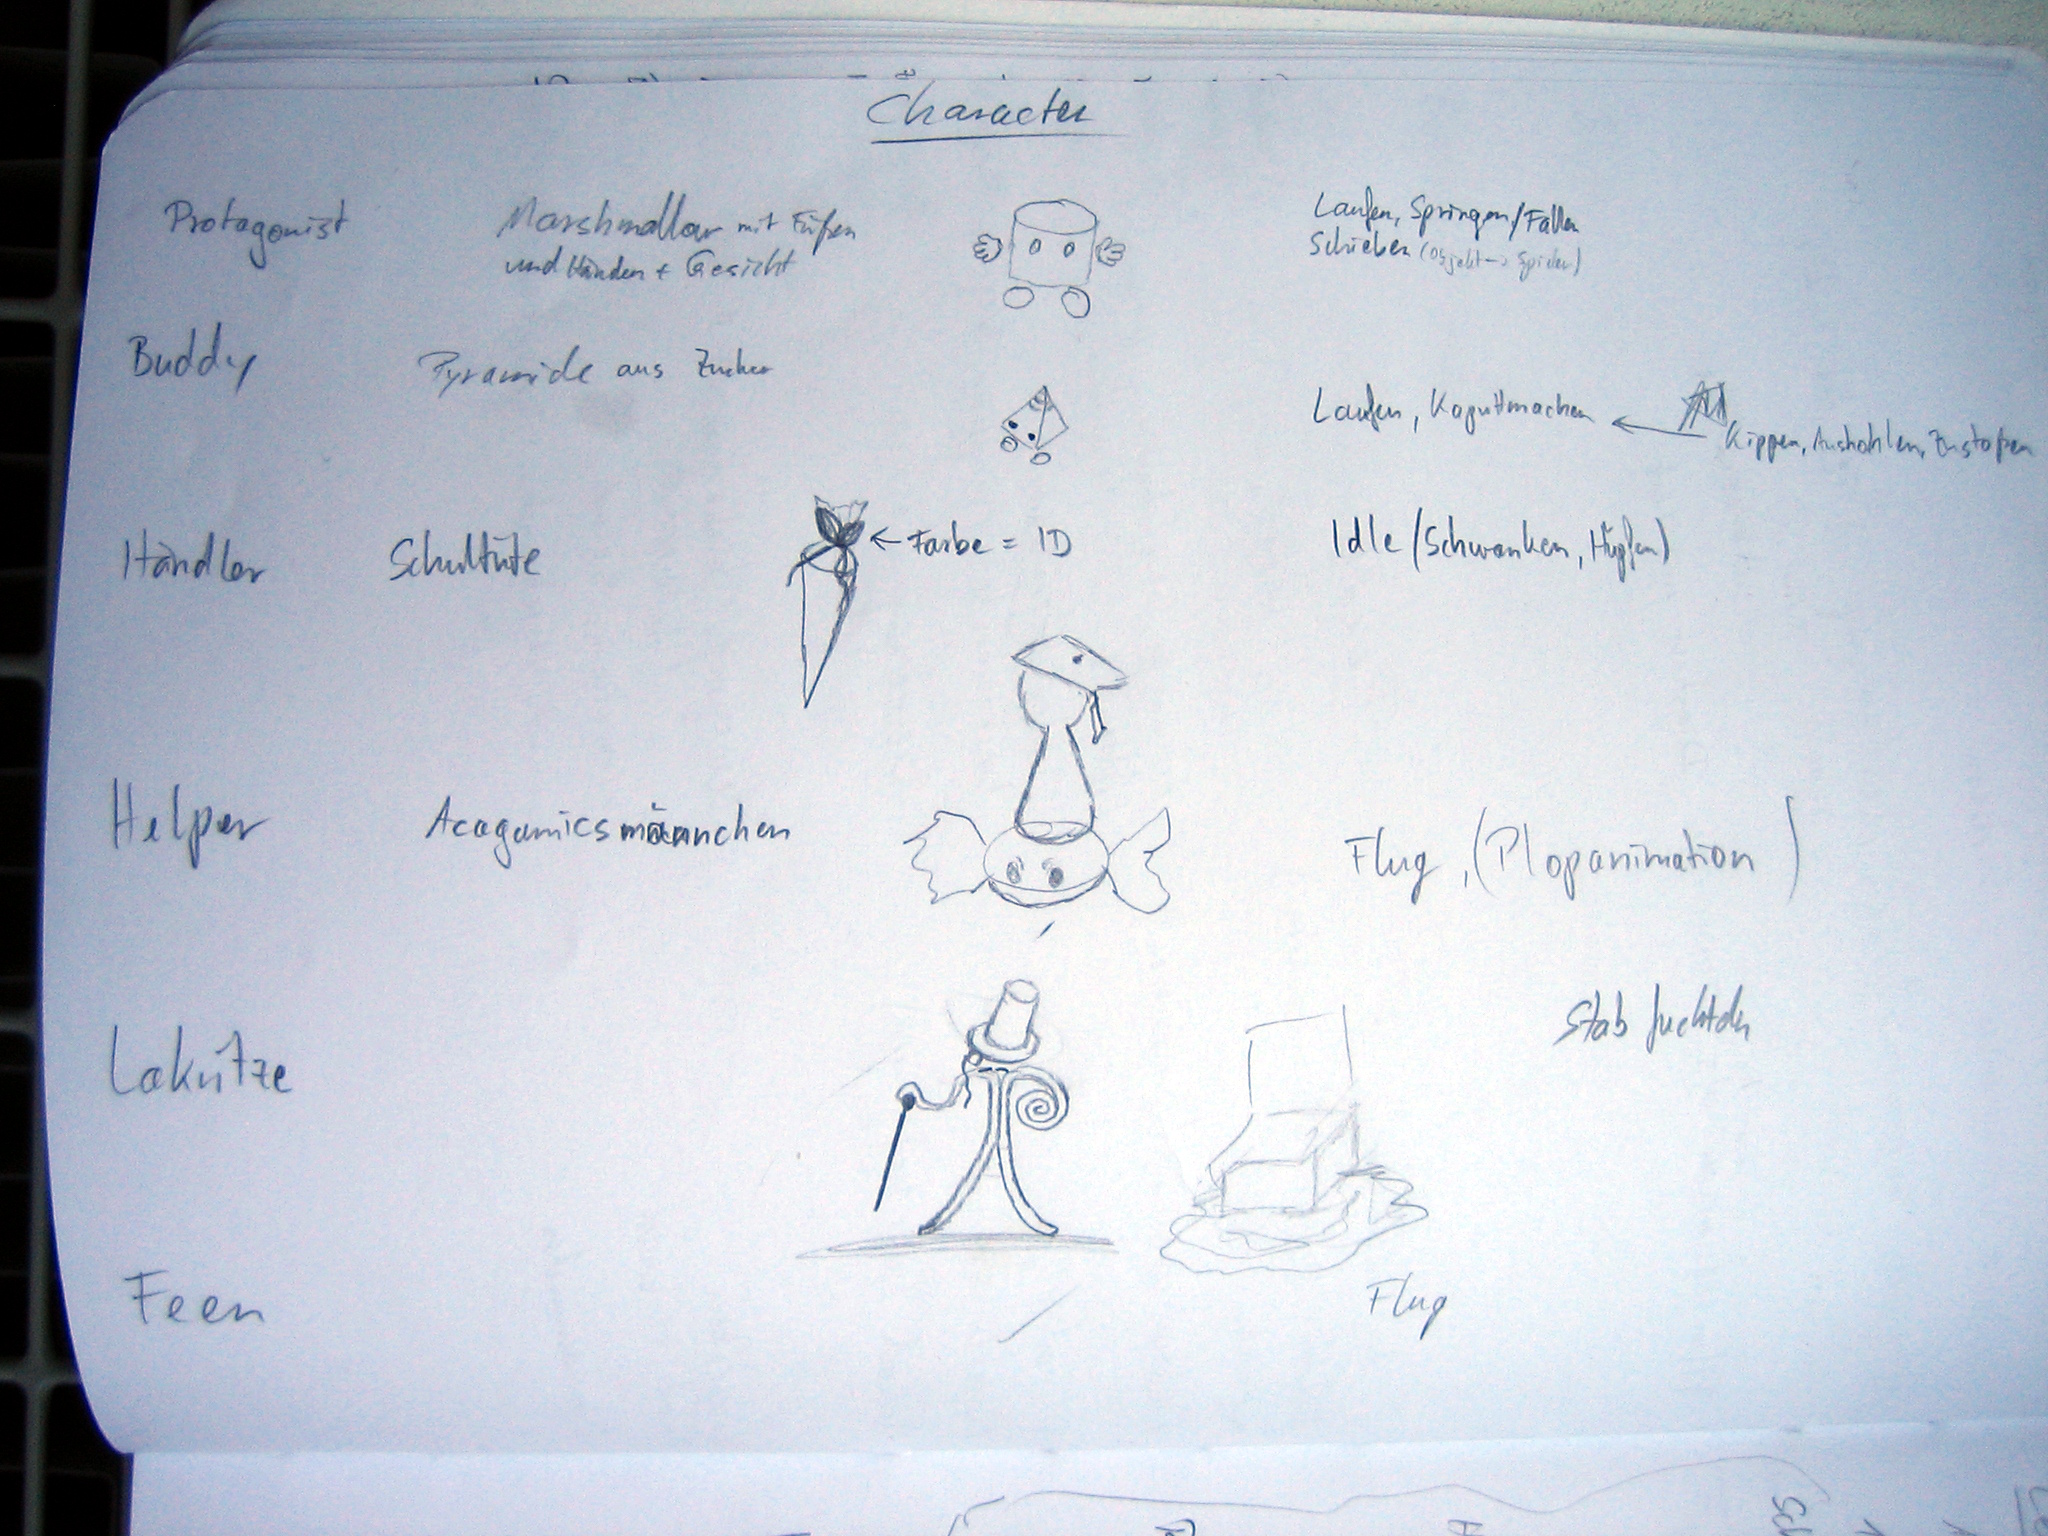 Character
Protagonist
Marshmallow mit Füßen
und Händen + Gesicht
Laufen, Springen/Fallen
Schieben (Objekt -> Spieler)
Buddy
Pyramide aus Zucker
Laufen, Kaputtmachen
Kippen, Ausholen, Zustoßen
Händler
Schultüte
← Farbe = ID
Idle (Schwanken, Hüpfen)
Helper
Acagamicsmännchen
Flug, (Plopanimation)
Lakritze
Stab
Feen
Flug